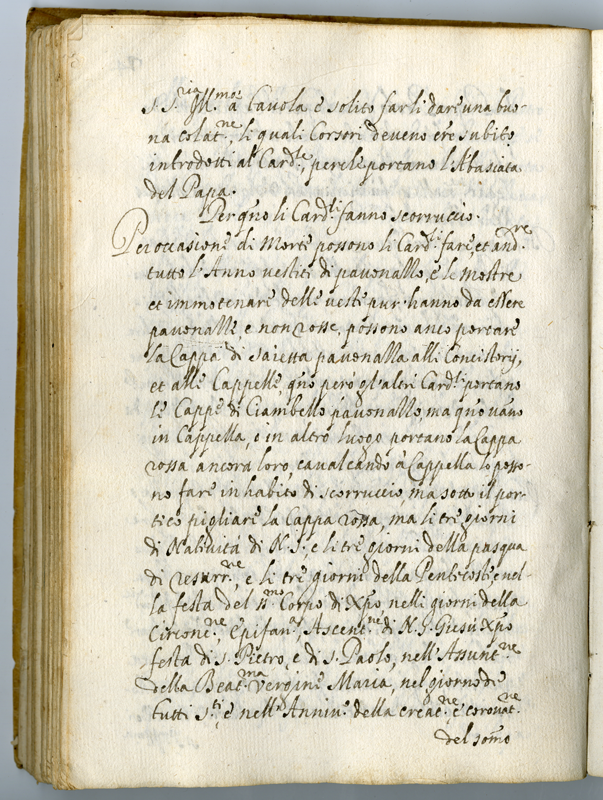 S. S.ria Ill.mo à tavola è solito farli dare una buo-
na colat.ne, li quali Corsori deveno ere subito
introdotti al Card.le, perche portano l'Abasiata
del Papa.
Per qño li Card.li fanno scorruccio.
Per occasione di Morte possono li Card.li fare, et and.re
tutto l'Anno vestiti di pavonallo, e le mostre
et immotenare delle vesti pur hanno da essere
pavonalle, e non rosse, possono anco portare
la Cappa di saietta pavonalla alli Concistorij,
et alle Cappelle qño però gl'altri Card.li portano
le Cappe di Ciambello pavonallo, ma qño vãno
in Cappella, ò in altro luogo portano la Cappa
rossa ancora loro, cavalcando à Cappella lo posso-
no fare in habito di scorruccio, ma sotto il por-
tico pigliare la Cappa rossa, ma li tre giorni
di Natività di N. S. e li tre giorni della pasqua
di resurr.ne, e li tre giorni della Pentecoste, nel-
la festa del S.mo Corpo di Xpo, nelli giorni della
Circonc.ne, Epifan.a, Ascent.ne di N. S. Giesù Xpo
festa di S. Pietro, e di S. Paolo, nell'Assunt.ne
della Beat.ma Vergine Maria, nel giorno di
tutti S.ti, e nell'Anniv.o della creat.ne e coronat.ne
del som̃o